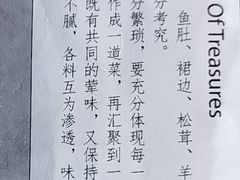 Of Treasures
鱼肚、裙边、松茸、羊
分考究。
分繁琐，要充分体现每一
作成一道菜，再汇聚到一
既有共同的荤味，又保持
不腻，各料互为渗透，味